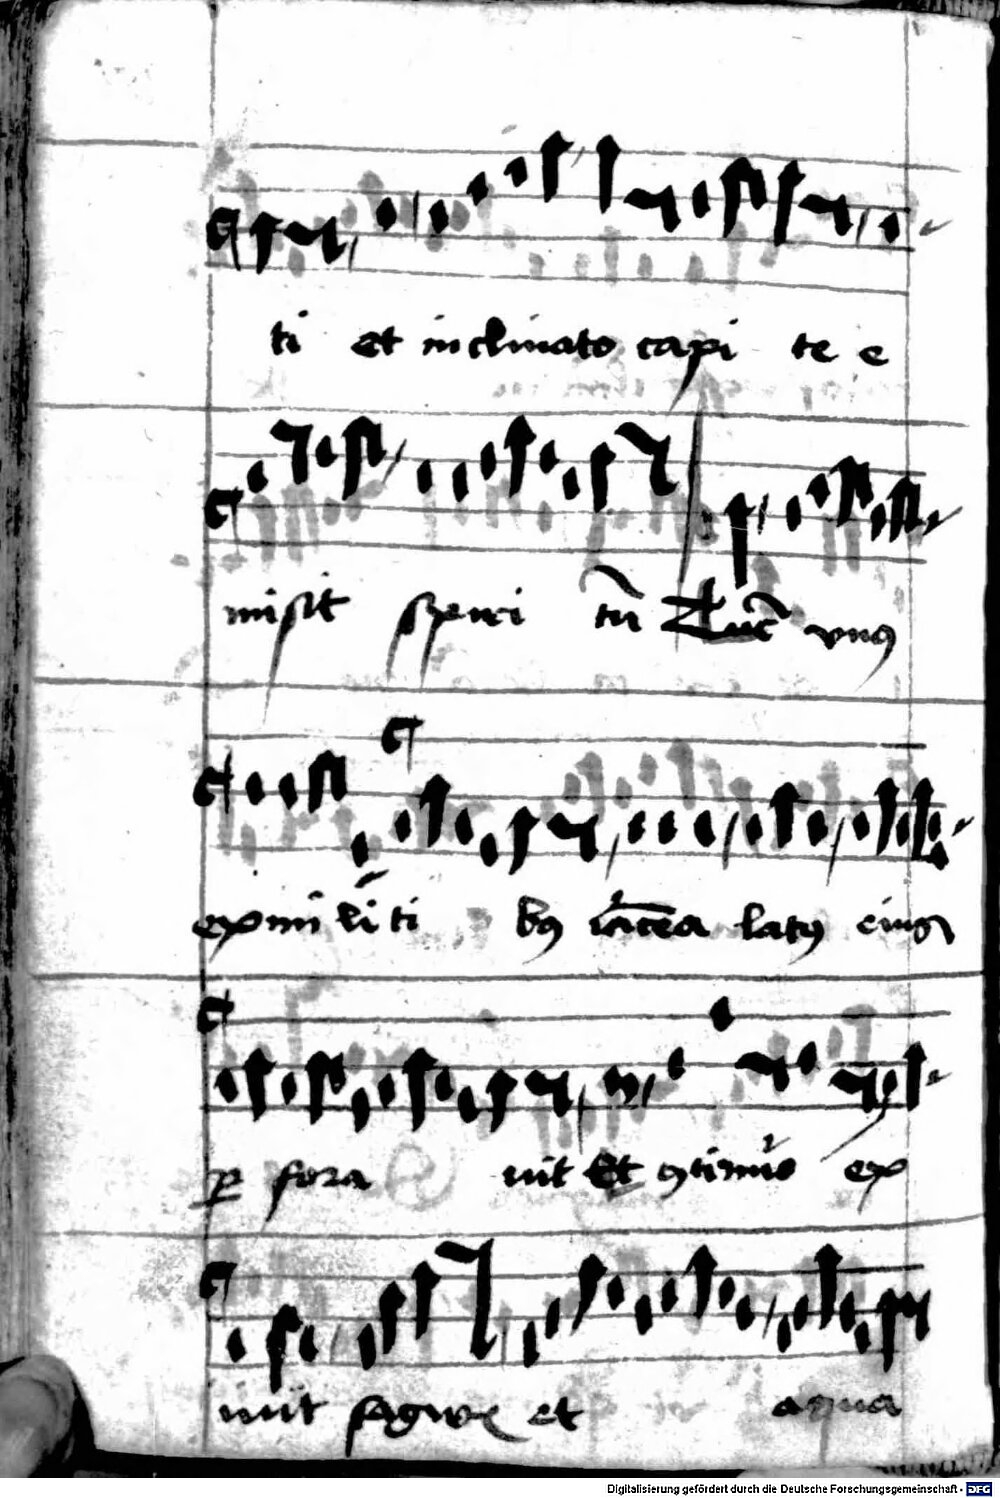 ti et inclinato capi te e
misit spiri tū Tūc vnꝰ
ex mi li ti bꝫ lācea latꝰ eiuꝰ
ꝑ fora uit Et ꝯtinuo ex
iuit sāgwis et aqua
Digitalisierung gefördert durch die Deutsche Forschungsgemeinschaft - DFG